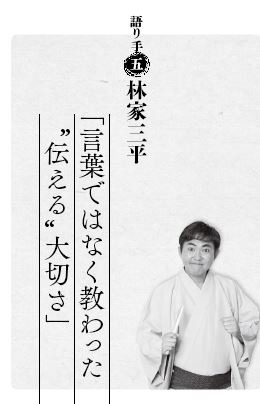 語り手 五 林家三平
「言葉ではなく教わった
〝伝える〟大切さ」